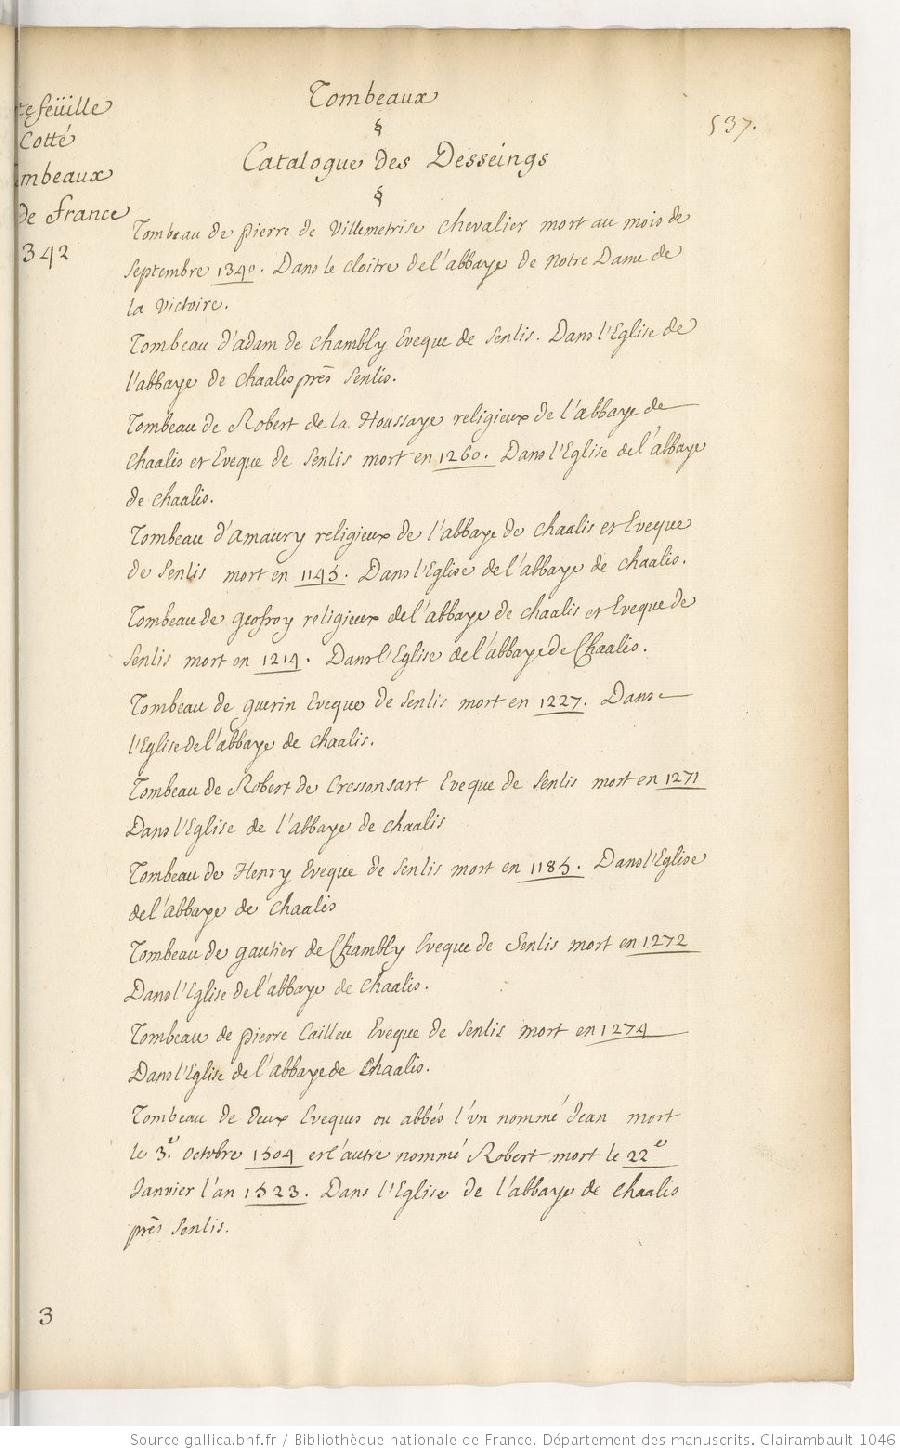 Tombeaux
§
537.
Catalogue des Desseings
§
tefeüille
Cotté
mbeaux
de france
342
Tombeau de pierre de Villemetrise chevalier mort au mois de
Septembre 1340. Dans le cloitre de l'abbaye de Notre Dame de
la Victoire.
Tombeau d'adam de chambly Eveque de Senlis. Dans l'Eglise de
l'abbaye de Chaalis près Senlis.
Tombeau de Robert de la Houssaye religieux de l'abbaye de
Chaalis et Eveque de Senlis mort en 1260. Dans l'Eglise de l'abbaye
de chaalis.
Tombeau d'amaury religieux de l'abbaye de chaalis et Eveque
de Senlis mort en 1145. Dans l'Eglise de l'abbaye de chaalis.
Tombeau de geofroy religieux de l'abbaye de chaalis et Eveque de
Senlis mort en 1214. Dans l'Eglise de l'abbaye de Chaalis.
Tombeau de guerin Eveque de Senlis mort en 1227. Dans
l'Eglise de l'abbaye de chaalis.
Tombeau de Robert de Cressonsart Eveque de Senlis mort en 1271
Dans l'Eglise de l'abbaye de chaalis
Tombeau de Henry Eveque de Senlis mort en 1185. Dans l'Eglise
de l'abbaye de Chaalis
Tombeau de gautier de Chambly Eveque de Senlis mort en 1272
Dans l'Eglise de l'abbaye de Chaalis.
Tombeau de pierre Cailleu Eveque de Senlis mort en 1274
Dans l'Eglise de l'abbaye de Chaalis.
Tombeau de deux Eveques ou abbés l'un nommé Jean mort
le 3.e Octobre 1304 et l'autre nommé Robert mort le 22e
Janvier l'an 1323. Dans l'Eglise de l'abbaye de Chaalis
près Senlis.
3
Source gallica.bnf.fr / Bibliothèque nationale de France. Département des manuscrits. Clairambault 1046